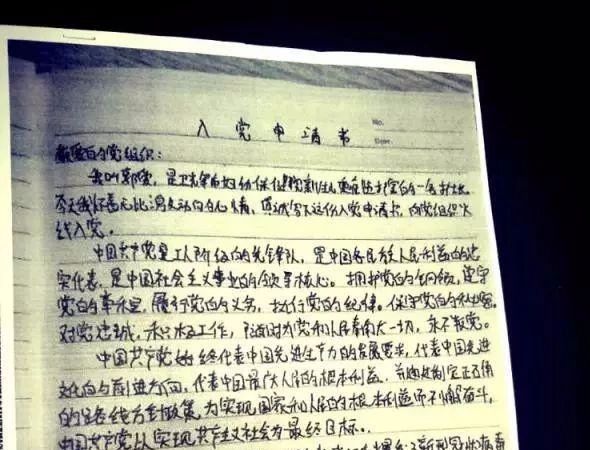 No.
Date.
入党申请书
敬爱的党组织：
我叫郭，是卫生妇幼保健院新生儿重症监护室的一名护士。
今天我怀着无比激动的心情，写下这份入党申请书，向党组织火
线入党。
中国共产党是工人阶级的先锋队，是中国各民族人民利益的忠
实代表，是中国社会主义事业的领导核心。拥护党的纲领，遵守
党的章程，履行党的义务，执行党的纪律。保守党的秘密。
对党忠诚，积极工作，随时为党和人民牺牲一切，永不叛党。
中国共产党始终代表中国先进生产力的发展要求，代表中国先进
文化的前进方向，代表中国最广大人民的根本利益，并通过制定正确
的路线方针政策，为实现国家和人民的根本利益而不懈奋斗，
中国共产党以实现共产主义社会为最终目标。
新型冠状病毒